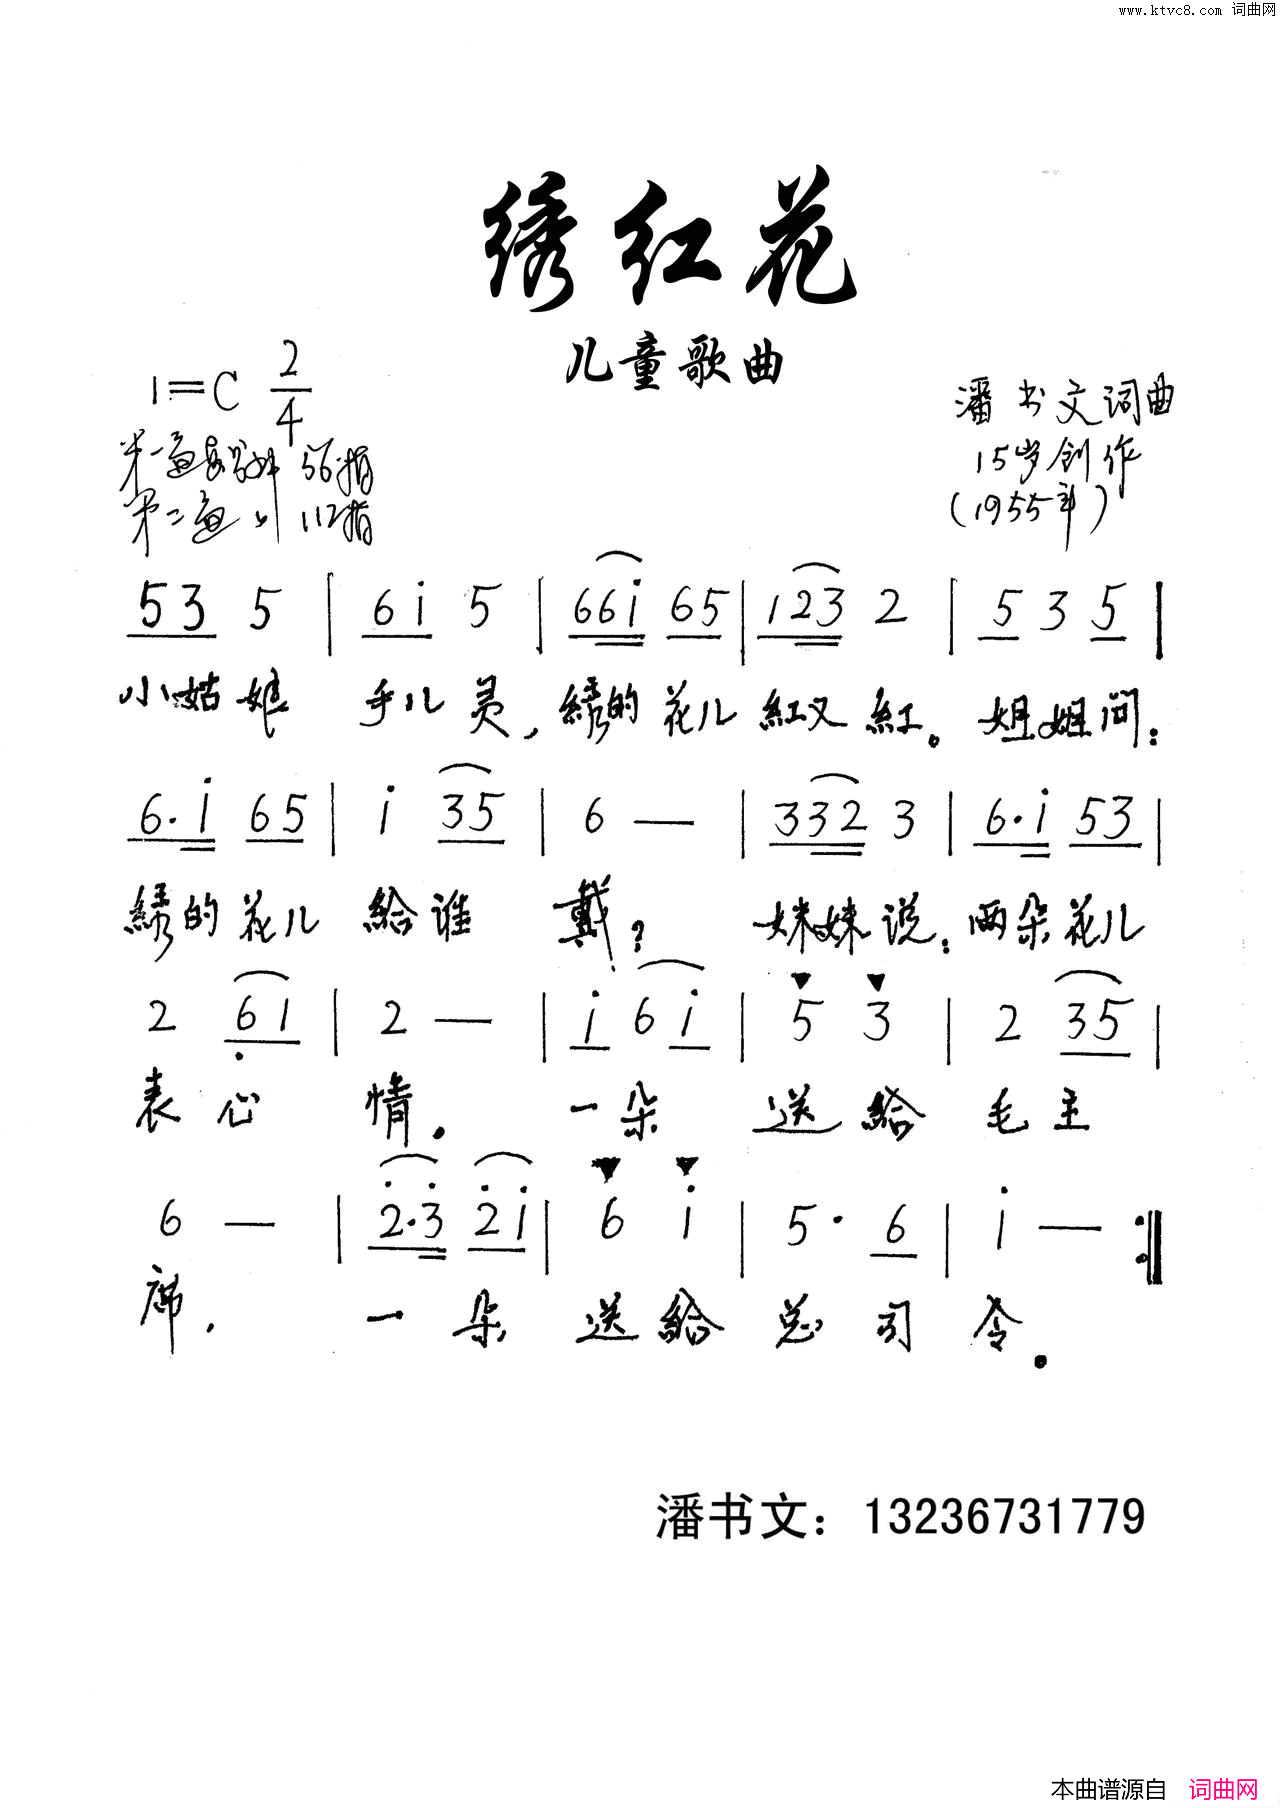 www.ktvc8.com 词曲网
绣红花
儿童歌曲
1=C 2/4
潘书文词曲
第一遍 56拍
15岁创作
第二遍 112拍
(1955年)
5 3 5 | 6 i 5 | 6 6 i 6 5 | 1 2 3 2 | 5 3 5 |
小姑娘 手儿灵,綉的花儿紅又紅。姐姐问:
6· i 6 5 | i 3 5 | 6 — | 3 3 2 3 | 6· i 5 3 |
綉的花儿 給谁 戴? 妹妹说:两朵花儿
2 6 1 | 2 — | i 6 i | 5 3 | 2 3 5 |
表心 情。 一朵 送給 毛主
6 — | 2· 3 2 i | 6 i | 5· 6 | i — :‖
席, 一朵 送給 总司 令。
潘书文：13236731779
本曲谱源自 词曲网